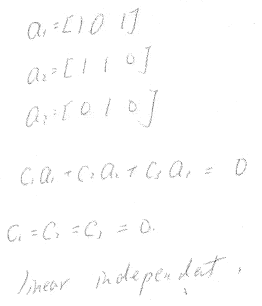 a₁ = [1 0 1]
a₂ = [1 1 0]
a₃ = [0 1 0]
C₁a₁ + C₂a₂ + C₃a₃ = 0
C₁ = C₂ = C₃ = 0.
linear independat.